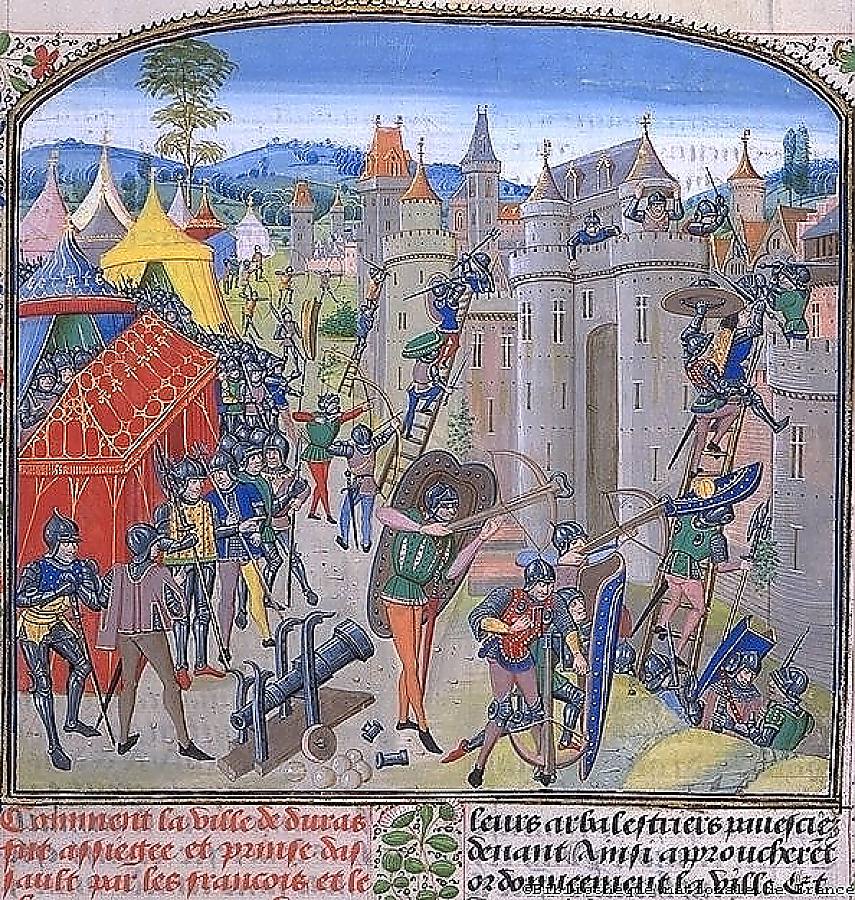 Comment la ville de duras
fut assiegee et prinse das
sault par les francois et le
leurs arbalestriers
deuant Ainsi aproucherēt
ordonneement la ville Et
©Bibliothèque nationale de France